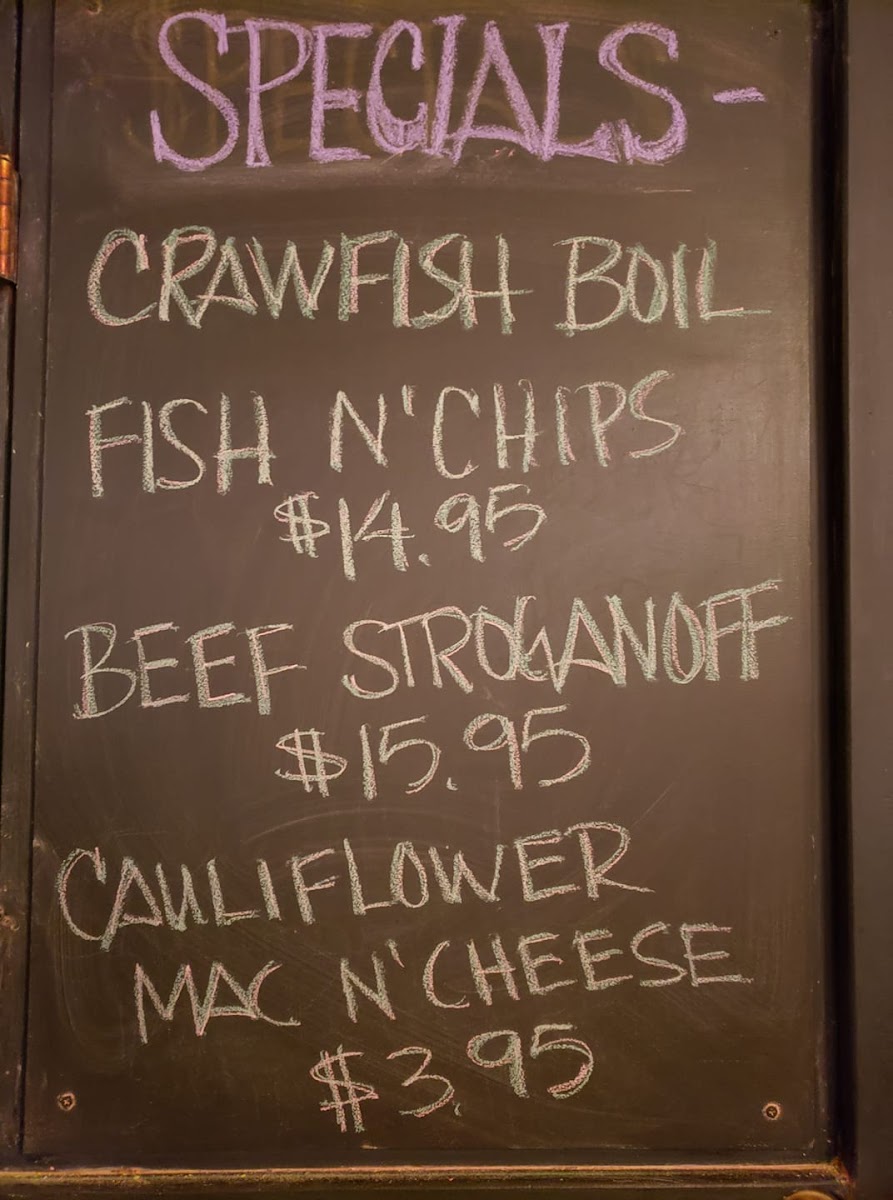 SPECIALS -
CRAWFISH BOIL
FISH N'CHIPS
$14.95
BEEF STROGANOFF
$15.95
CAULIFLOWER
MAC N'CHEESE
$3.95